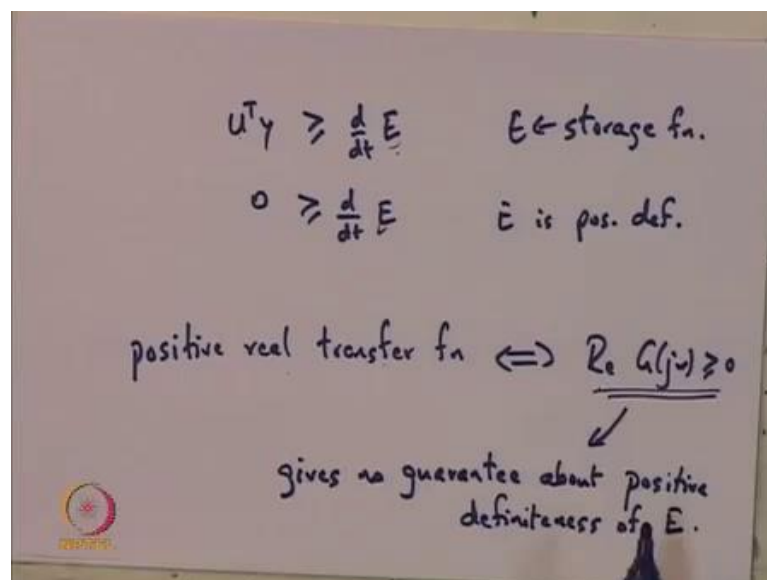 uᵀy ≥ d/dt E E ← storage fn.
0 ≥ d/dt E E is pos. def.
positive real transfer fn ⇔ Re G(jω) ≥ 0
gives no guarantee about positive
definiteness of E.
NPTEL